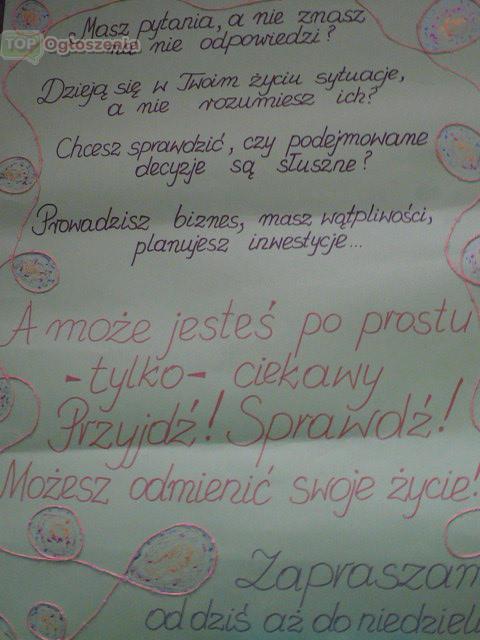 TOP Ogłoszenia
Masz pytania, a nie znasz
na nie odpowiedzi?
Dzieją się w Twoim życiu sytuacje,
a nie rozumiesz ich?
Chcesz sprawdzić, czy podejmowane
decyzje są słuszne?
Prowadzisz biznes, masz wątpliwości,
planujesz inwestycje...
A może jesteś po prostu
-tylko- ciekawy
Przyjdź! Sprawdź!
Możesz odmienić swoje życie!
Zapraszam
od dziś aż do niedziel